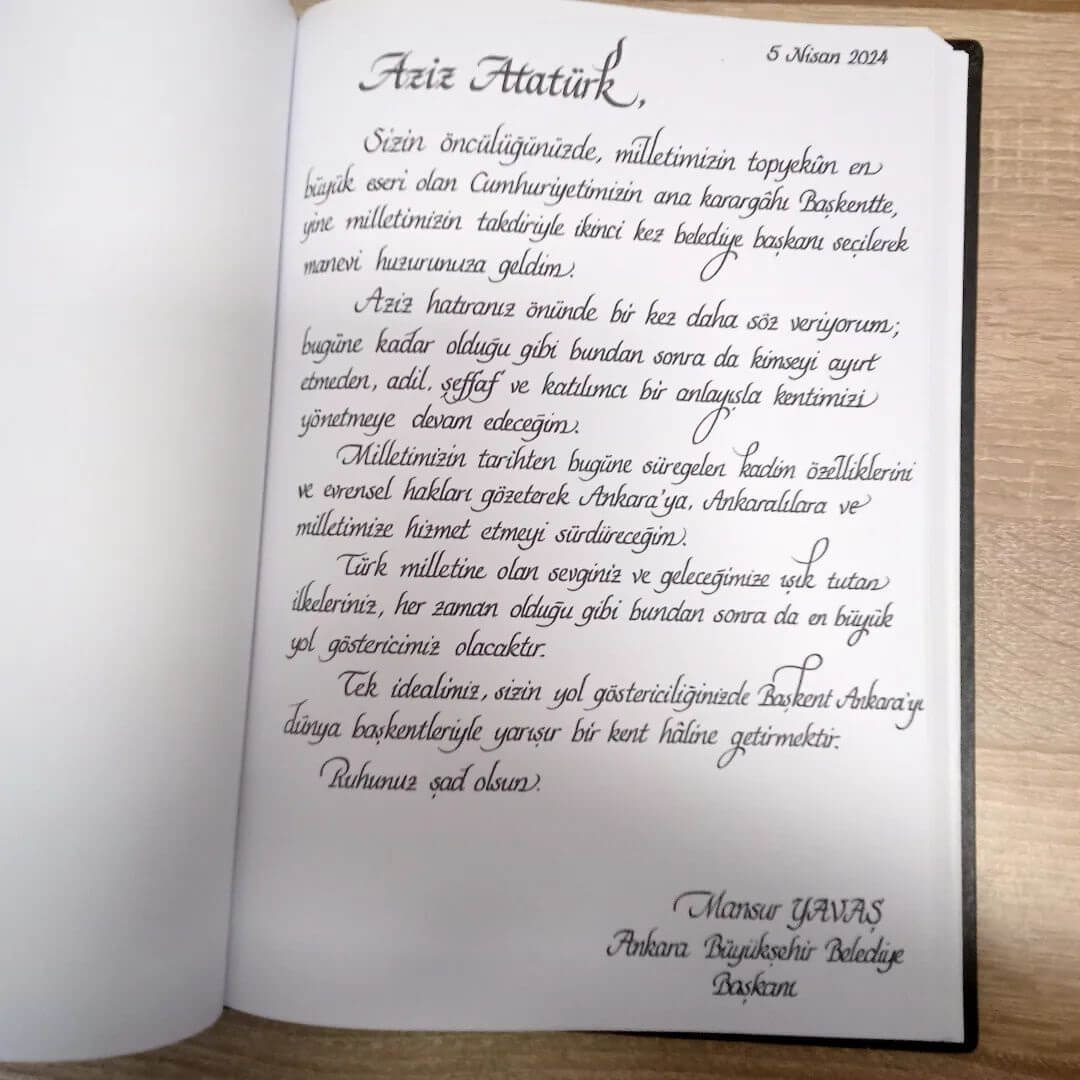 5 Nisan 2024
Aziz Atatürk,
Sizin öncülüğünüzde, milletimizin topyekûn en
büyük eseri olan Cumhuriyetimizin ana karargâhı Başkentte,
yine milletimizin takdiriyle ikinci kez belediye başkanı seçilerek
manevi huzurunuza geldim.
Aziz hatıranız önünde bir kez daha söz veriyorum;
bugüne kadar olduğu gibi bundan sonra da kimseyi ayırt
etmeden, adil, şeffaf ve katılımcı bir anlayışla kentimizi
yönetmeye devam edeceğim.
Milletimizin tarihten bugüne süregelen kadim özelliklerini
ve evrensel hakları gözeterek Ankara'ya, Ankaralılara ve
milletimize hizmet etmeyi sürdüreceğim.
Türk milletine olan sevginiz ve geleceğimize ışık tutan
ilkeleriniz, her zaman olduğu gibi bundan sonra da en büyük
yol göstericimiz olacaktır.
Tek idealimiz, sizin yol göstericiliğinizde Başkent Ankara'yı
dünya başkentleriyle yarışır bir kent hâline getirmektir.
Ruhunuz şad olsun.
Mansur YAVAŞ
Ankara Büyükşehir Belediye
Başkanı